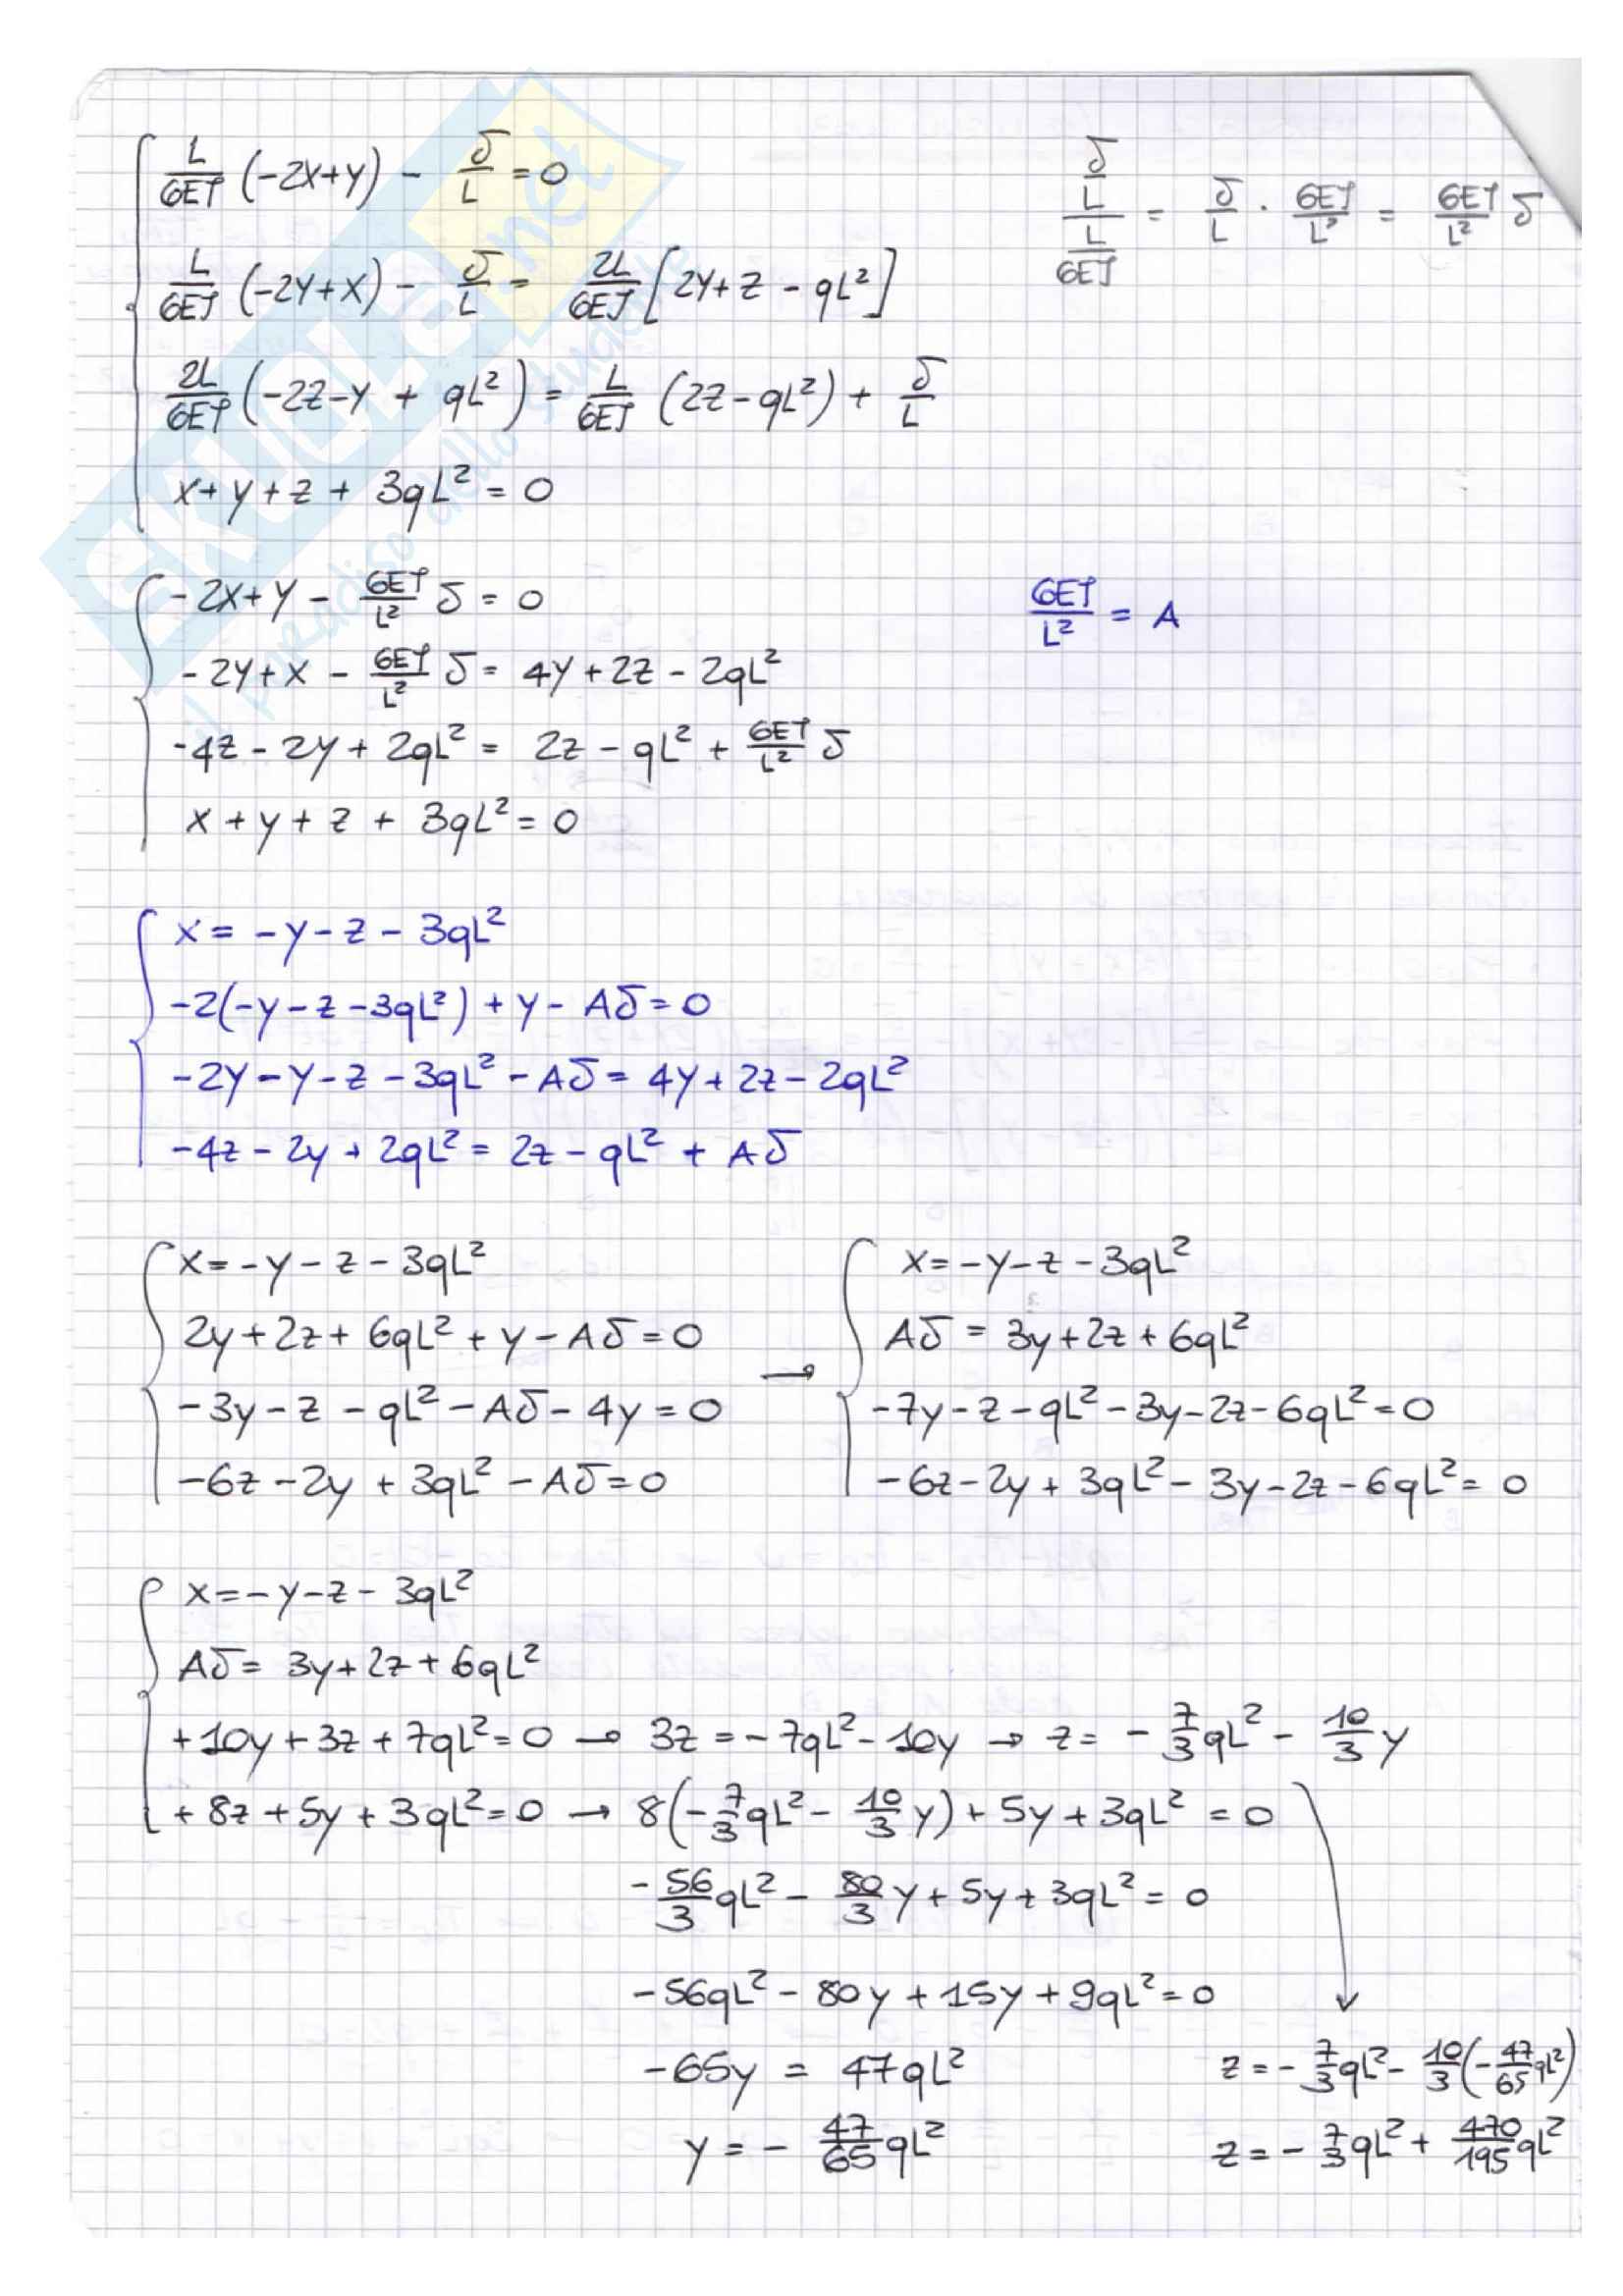 L/6EJ (-2X+Y) - δ/L = 0
(δ/L)/(L/6EJ) = δ/L · 6EJ/L² = 6EJ/L² δ
L/6EJ (-2Y+X) - δ/L = 2L/6EJ [2Y+Z - qL²]
2L/6EJ (-2Z-Y + qL²) = L/6EJ (2Z-qL²) + δ/L
X+Y+Z + 3qL² = 0
-2X+Y - 6EJ/L² δ = 0
6EJ/L² = A
-2Y+X - 6EJ/L² δ = 4Y+2Z-2qL²
-4Z-2Y+2qL² = 2Z-qL² + 6EJ/L² δ
X+Y+Z + 3qL² = 0
X = -Y-Z-3qL²
-2(-Y-Z-3qL²)+Y-Aδ=0
-2Y-Y-Z-3qL²-Aδ=4Y+2Z-2qL²
-4Z-2Y+2qL²=2Z-qL²+Aδ
X=-Y-Z-3qL²
2Y+2Z+6qL²+Y-Aδ=0
-3Y-Z-qL²-Aδ-4Y=0
-6Z-2Y+3qL²-Aδ=0
→
X=-Y-Z-3qL²
Aδ=3Y+2Z+6qL²
-7Y-Z-qL²-3Y-2Z-6qL²=0
-6Z-2Y+3qL²-3Y-2Z-6qL²=0
X=-Y-Z-3qL²
Aδ=3Y+2Z+6qL²
+10Y+3Z+7qL²=0 → 3Z=-7qL²-10Y → Z= - 7/3 qL² - 10/3 Y
+8Z+5Y+3qL²=0 → 8(-7/3 qL² - 10/3 Y)+5Y+3qL²=0
-56/3 qL² - 80/3 Y+5Y+3qL²=0
-56qL²-80Y+15Y+9qL²=0
-65Y = 47qL²
Z=-7/3 qL²-10/3(-47/65 qL²)
Y=- 47/65 qL²
Z=-7/3 qL²+470/195 qL²
SKUOLA.net
il paradiso dello studente